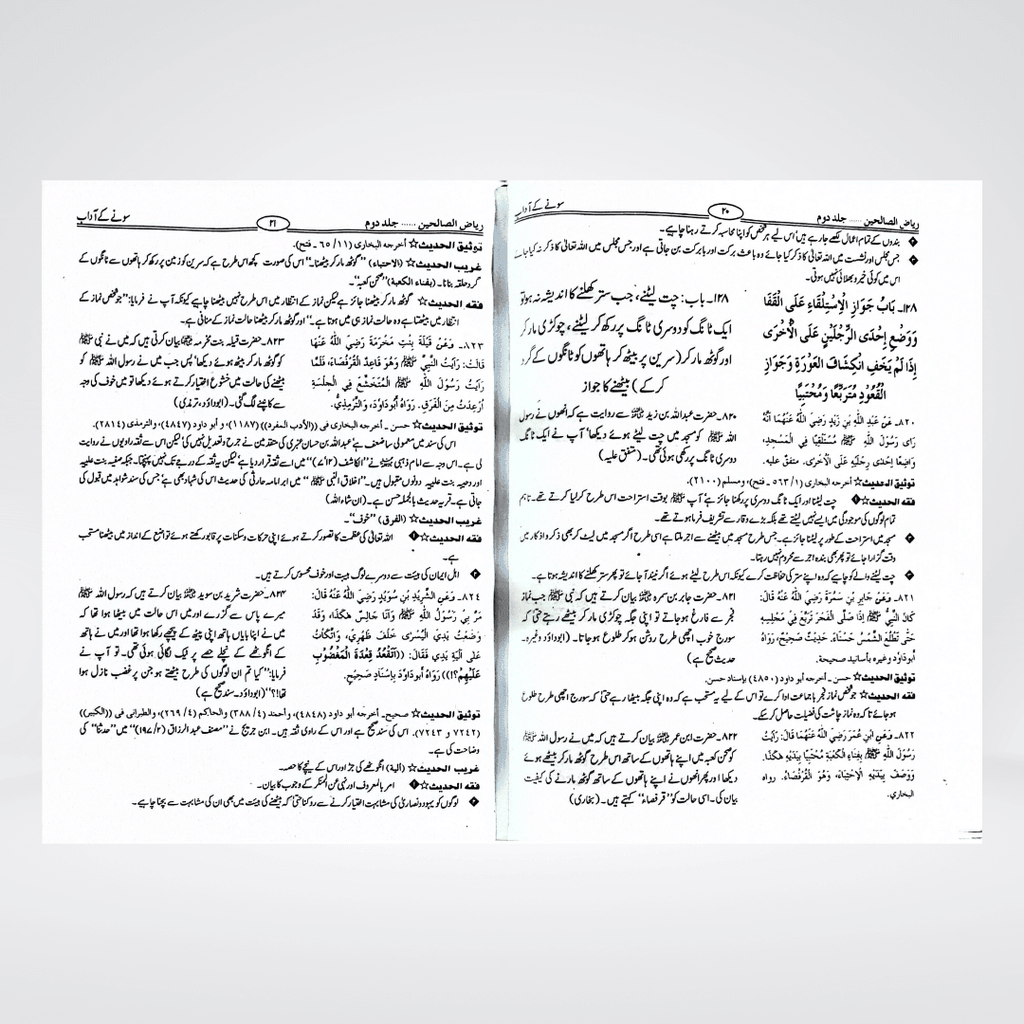 ریاض الصالحین ...... جلد دوم ۲۰ سونے کے آداب
بندوں کے تمام اعمال لکھے جا رہے ہیں اس لیے ہر شخص کو اپنا محاسبہ کرتے رہنا چاہیے۔
جس مجلس اور نشست میں اللہ تعالیٰ کا ذکر کیا جائے وہ باعث برکت اور بابرکت بن جاتی ہے اور جس مجلس میں اللہ تعالیٰ کا ذکر نہ کیا جائے
اس میں کوئی خیر و بھلائی نہیں ہوتی۔
۱۲۸۔ بَابُ جَوَازِ الْاِسْتِلْقَاءِ عَلَى الْقَفَا
وَوَضْعِ إِحْدَى الرِّجْلَيْنِ عَلَى الْأُخْرَى
إِذَا لَمْ يَخَفِ انْكِشَافَ الْعَوْرَةِ وَجَوَازِ
الْقُعُودِ مُتَرَبِّعًا وَمُحْتَبِيًا
۱۲۸۔ باب: چت لیٹنے، جب ستر کھلنے کا اندیشہ نہ ہو تو
ایک ٹانگ کو دوسری ٹانگ پر رکھ کر لیٹنے، چوکڑی مار کر
اور گوٹھ مار کر (سرین پر بیٹھ کر ہاتھوں کو ٹانگوں کے گرد
کر کے) بیٹھنے کا جواز
۸۲۰۔ عَنْ عَبْدِ اللَّهِ بْنِ زَيْدٍ رَضِيَ اللَّهُ عَنْهُمَا أَنَّهُ
رَأَى رَسُولَ اللَّهِ ﷺ مُسْتَلْقِيًا فِي الْمَسْجِدِ،
وَاضِعًا إِحْدَى رِجْلَيْهِ عَلَى الْأُخْرَى. متفق عليه.
۸۲۰۔ حضرت عبداللہ بن زید ؓ سے روایت ہے کہ انھوں نے رسول
اللہ ﷺ کو مسجد میں چت لیٹے ہوئے دیکھا' آپ نے ایک ٹانگ
دوسری ٹانگ پر رکھی ہوئی تھی۔ (متفق علیہ)
توثیق الحدیث☆ أخرجه البخاري (۱/ ۵۶۳ ۔ فتح)، ومسلم (۲۱۰۰).
فقه الحدیث☆ چت لیٹنا اور ایک ٹانگ دوسری پر رکھنا جائز ہے آپ ﷺ بوقت استراحت اس طرح کر لیا کرتے تھے۔ تاہم
تمام لوگوں کی موجودگی میں ایسے نہیں لیٹتے تھے بلکہ بڑے وقار سے تشریف فرما ہوتے تھے۔
مسجد میں استراحت کے طور پر لیٹنا جائز ہے۔ جس طرح مسجد میں بیٹھنے سے اجر ملتا ہے اسی طرح اگر مسجد میں لیٹ کر بھی ذکر و اذکار میں
وقت گزارا جائے تو پھر بھی بندہ اجر سے محروم نہیں رہتا۔
چت لیٹنے والے کو چاہیے کہ وہ اپنے ستر کی حفاظت کرے کیونکہ اس طرح لیٹے ہوئے اگر نیند آ جائے تو پھر ستر کھلنے کا اندیشہ ہوتا ہے۔
۸۲۱۔ وَعَنْ جَابِرِ بْنِ سَمُرَةَ رَضِيَ اللَّهُ عَنْهُ قَالَ:
كَانَ النَّبِيُّ ﷺ إِذَا صَلَّى الْفَجْرَ تَرَبَّعَ فِي مَجْلِسِهِ
حَتَّى تَطْلُعَ الشَّمْسُ حَسْنَاءَ. حَدِيثٌ صَحِيحٌ، رَوَاهُ
أَبُو دَاوُدَ وغيره بأسانيد صحيحة.
۸۲۱۔ حضرت جابر بن سمرہ ؓ بیان کرتے ہیں کہ نبی ﷺ جب نماز
فجر سے فارغ ہو جاتے تو اپنی جگہ چوکڑی مار کر بیٹھے رہتے حتیٰ کہ
سورج خوب اچھی طرح روشن ہو کر طلوع ہو جاتا۔ (ابوداؤد وغیرہ۔
حدیث صحیح ہے)
توثیق الحدیث☆ حسن۔ أخرجه أبو داود (۴۸۵۰) بإسناد حسن.
فقه الحدیث☆ جو شخص نماز فجر با جماعت ادا کرے تو اس کے لیے یہ مستحب ہے کہ وہ اپنی جگہ بیٹھا رہے حتیٰ کہ سورج اچھی طرح طلوع
ہو جائے تاکہ وہ نماز چاشت کی فضیلت حاصل کر سکے۔
۸۲۲۔ وَعَنِ ابْنِ عُمَرَ رَضِيَ اللَّهُ عَنْهُمَا قَالَ: رَأَيْتُ
رَسُولَ اللَّهِ ﷺ بِفِنَاءِ الْكَعْبَةِ مُحْتَبِيًا بِيَدَيْهِ هٰكَذَا.
وَوَصَفَ بِيَدَيْهِ الْاِحْتِبَاءَ، وَهُوَ الْقُرْفُصَاءُ. رواه
البخاري.
۸۲۲۔ حضرت ابن عمر ؓ بیان کرتے ہیں کہ میں نے رسول اللہ ﷺ
کو صحن کعبہ میں اپنے ہاتھوں کے ساتھ اس طرح گوٹھ مار کر بیٹھے ہوئے
دیکھا اور پھر انھوں نے اپنے ہاتھوں کے ساتھ گوٹھ مارنے کی کیفیت
بیان کی۔ اسی حالت کو "قرفصاء" کہتے ہیں۔ (بخاری)
ریاض الصالحین ...... جلد دوم ۲۱ سونے کے آداب
توثیق الحدیث☆ أخرجه البخاري (۱۱/ ۶۵ ۔ فتح).
غریب الحدیث☆ (الاحتباء) "گوٹھ مار کر بیٹھنا۔" اس کی صورت کچھ اس طرح ہے کہ سرین کو زمین پر رکھ کر ہاتھوں سے ٹانگوں کے
گرد حلقہ بنانا۔ (بفناء الكعبة) "صحن کعبہ"۔
فقه الحدیث☆ گوٹھ مار کر بیٹھنا جائز ہے لیکن نماز کے انتظار میں اس طرح نہیں بیٹھنا چاہیے کیونکہ آپ نے فرمایا: "جو شخص نماز کے
انتظار میں بیٹھتا ہے وہ حالت نماز ہی میں ہوتا ہے۔" اور گوٹھ مار کر بیٹھنا حالت نماز کے منافی ہے۔
۸۲۳۔ وَعَنْ قَيْلَةَ بِنْتِ مَخْرَمَةَ رَضِيَ اللَّهُ عَنْهَا
قَالَتْ: رَأَيْتُ النَّبِيَّ ﷺ وَهُوَ قَاعِدٌ الْقُرْفُصَاءَ، فَلَمَّا
رَأَيْتُ رَسُولَ اللَّهِ ﷺ الْمُتَخَشِّعَ فِي الْجِلْسَةِ
أُرْعِدْتُ مِنَ الْفَرَقِ. رَوَاهُ أَبُو دَاوُدَ، وَالتِّرْمِذِيُّ.
۸۲۳۔ حضرت قیلہ بنت مخرمہ ؓ بیان کرتی ہیں کہ میں نے نبی ﷺ
کو گوٹھ مار کر بیٹھے ہوئے دیکھا' پس جب میں نے رسول اللہ ﷺ کو
بیٹھنے کی حالت میں خشوع اختیار کرتے ہوئے دیکھا تو میں خوف کی وجہ
سے کانپنے لگ گئی۔ (ابوداؤد، ترمذی)
توثیق الحدیث☆ حسن۔ أخرجه البخاري في ((الأدب المفرد)) (۱۱۸۷)، و أبو داود (۴۸۴۷) والترمذي (۲۸۱۴).
اس کی سند میں معمولی سا ضعف ہے عبداللہ بن حسان عنبری کی متقدمین نے جرح و تعدیل نہیں کی' لیکن اس سے ثقہ راویوں نے روایت
لی ہے۔ اس وجہ سے امام ذہبی نے "الکاشف" (۷۳/۲) میں اسے ثقہ قرار دیا ہے لیکن یہ ثقہ کے درجے تک نہیں پہنچتا۔ جبکہ صفیہ بنت علیبہ
اور دحیبہ بنت علیبہ دونوں مقبول ہیں۔ "اخلاق النبی ﷺ" میں ابوامامہ حارثی کی حدیث اس کی شاہد بھی ہے جس کی سند شواہد میں قبول کی
جاتی ہے۔ تو یہ حدیث بالجملہ حسن ہے۔ (ان شاء اللہ)
غریب الحدیث☆ (الفرق) "خوف"۔
فقه الحدیث☆ اللہ تعالیٰ کی عظمت کا تصور کرتے ہوئے اپنی حرکات و سکنات پر قابو رکھتے ہوئے تواضع کے انداز میں بیٹھنا مستحب
ہے۔
اہل ایمان کی ہیبت سے دوسرے لوگ ہیبت اور خوف محسوس کرتے ہیں۔
۸۲۴۔ وَعَنِ الشَّرِيدِ بْنِ سُوَيْدٍ رَضِيَ اللَّهُ عَنْهُ قَالَ:
مَرَّ بِي رَسُولُ اللَّهِ ﷺ وَأَنَا جَالِسٌ هٰكَذَا، وَقَدْ
وَضَعْتُ يَدِيَ الْيُسْرَى خَلْفَ ظَهْرِي، وَاتَّكَأْتُ
عَلَى أَلْيَةِ يَدِي فَقَالَ: ((أَتَقْعُدُ قِعْدَةَ الْمَغْضُوبِ
عَلَيْهِمْ؟!)) رَوَاهُ أَبُو دَاوُدَ بِإِسْنَادٍ صَحِيحٍ.
۸۲۴۔ حضرت شرید بن سوید ؓ بیان کرتے ہیں کہ رسول اللہ ﷺ
میرے پاس سے گزرے اور میں اس حالت میں بیٹھا ہوا تھا کہ
میں نے اپنا بایاں ہاتھ اپنی پیٹھ کے پیچھے رکھا ہوا تھا اور میں نے ہاتھ
کے انگوٹھے کے نچلے حصے پر ٹیک لگائی ہوئی تھی۔ تو آپ نے
فرمایا: "کیا تم ان لوگوں کی طرح بیٹھتے ہو جن پر غضب نازل ہوا
تھا؟؟" (ابوداؤد۔ سند صحیح ہے)
توثیق الحدیث☆ صحیح۔ أخرجه أبو داود (۴۸۴۸)، وأحمد (۴/ ۳۸۸) والحاكم (۴/ ۲۶۹)، والطبراني في ((الكبير))
(۷۲۴۲ و ۷۲۴۳). اس کی سند صحیح ہے اور اس کے راوی ثقہ ہیں۔ ابن جریج نے "مصنف عبدالرزاق (۱۹۷/۲)" میں "حدثنا" کی
وضاحت کی ہے۔
غریب الحدیث☆ (ألية) انگوٹھے کی جڑ اور اس کے نیچے کا حصہ۔
فقه الحدیث☆ امر بالمعروف اور نہی عن المنکر کے وجوب کا بیان۔
لوگوں کو یہود و نصاریٰ کی مشابہت اختیار کرنے سے روکنا حتیٰ کہ بیٹھنے کی ہیئت میں بھی ان کی مشابہت سے بچنا چاہیے۔